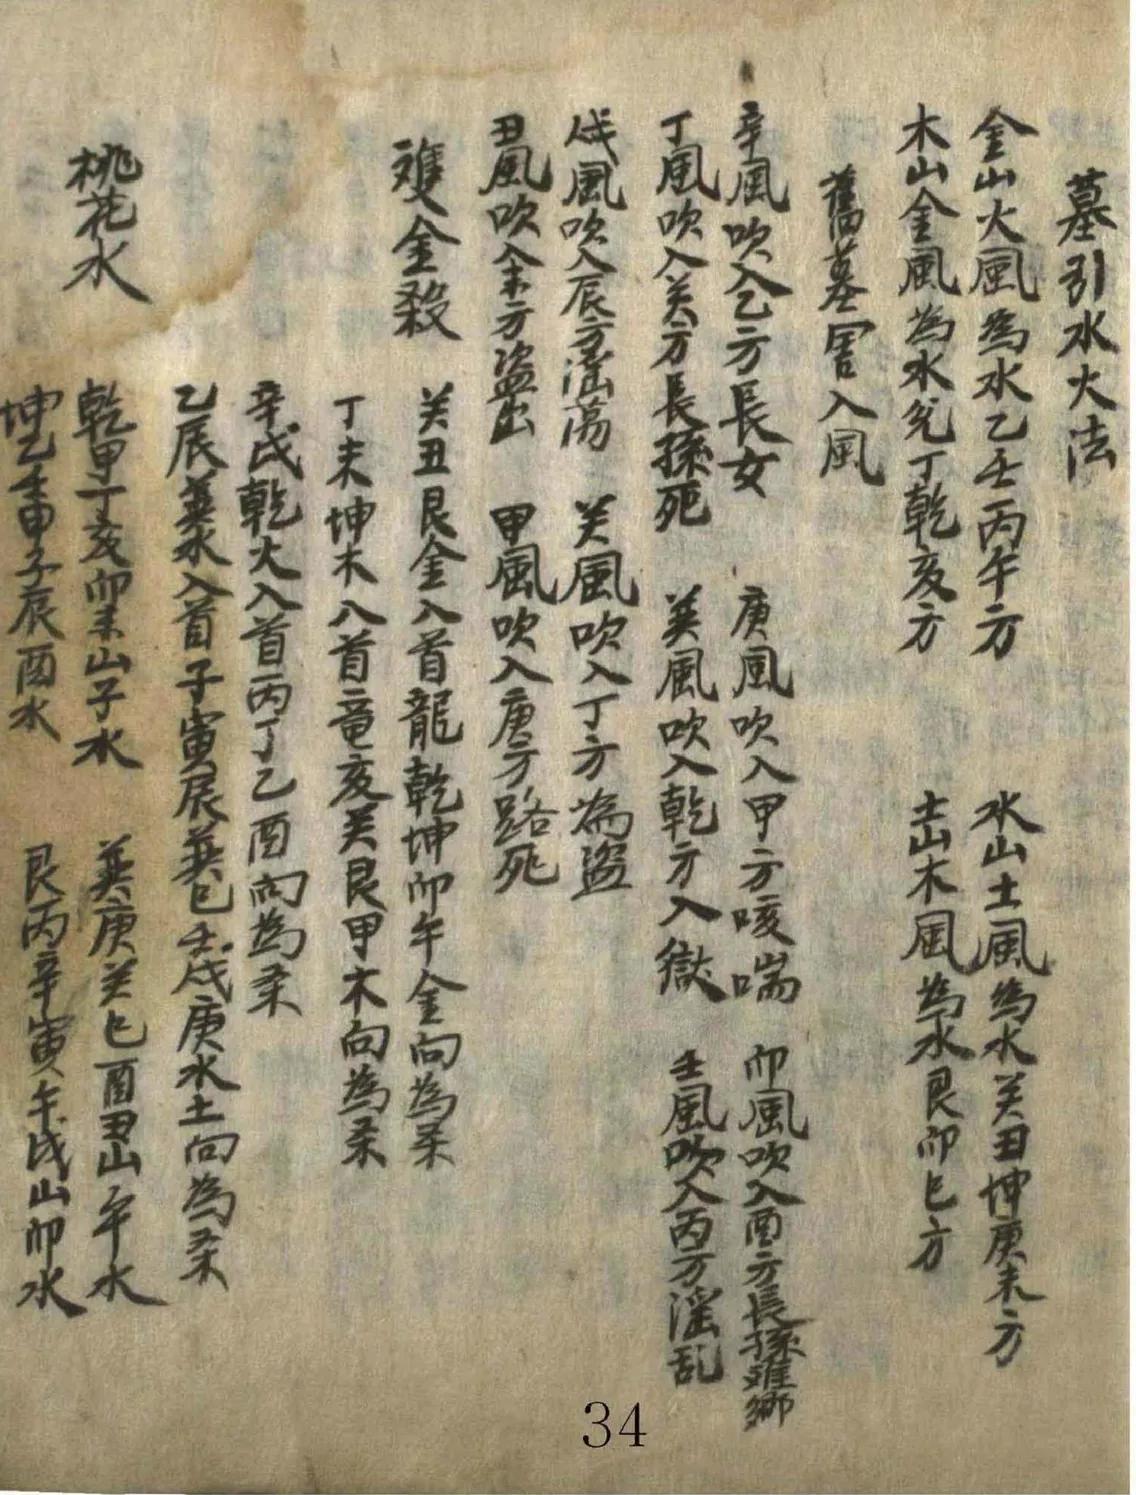 墓引水火法
金山火風為水乙壬丙午方 水山土風為水癸丑坤庚未方
木山金風為水兌丁乾亥方 土山木風為水艮卯巳方
舊墓害入風
辛風吹入乙方長女 庚風吹入甲方咳喘 卯風吹入酉方長孫離鄉
丁風吹入癸方長孫死 巽風吹入乾方入獄 壬風吹入丙方淫乱
戌風吹入辰方淫蕩 癸風吹入丁方為盜
丑風吹入未方盜出 甲風吹入庚方路死
雙金殺 癸丑艮金入首龍乾坤卯午金向為柔
丁未坤木入首竜亥癸艮甲木向為柔
辛戌乾火入首丙丁乙酉向為柔
乙辰巽水入首子寅辰巽巳壬戌庚水土向為柔
桃花水 乾甲丁亥卯未山子水 巽庚癸巳酉丑山午水
坤乙壬申子辰酉水 艮丙辛寅午戌山卯水
34